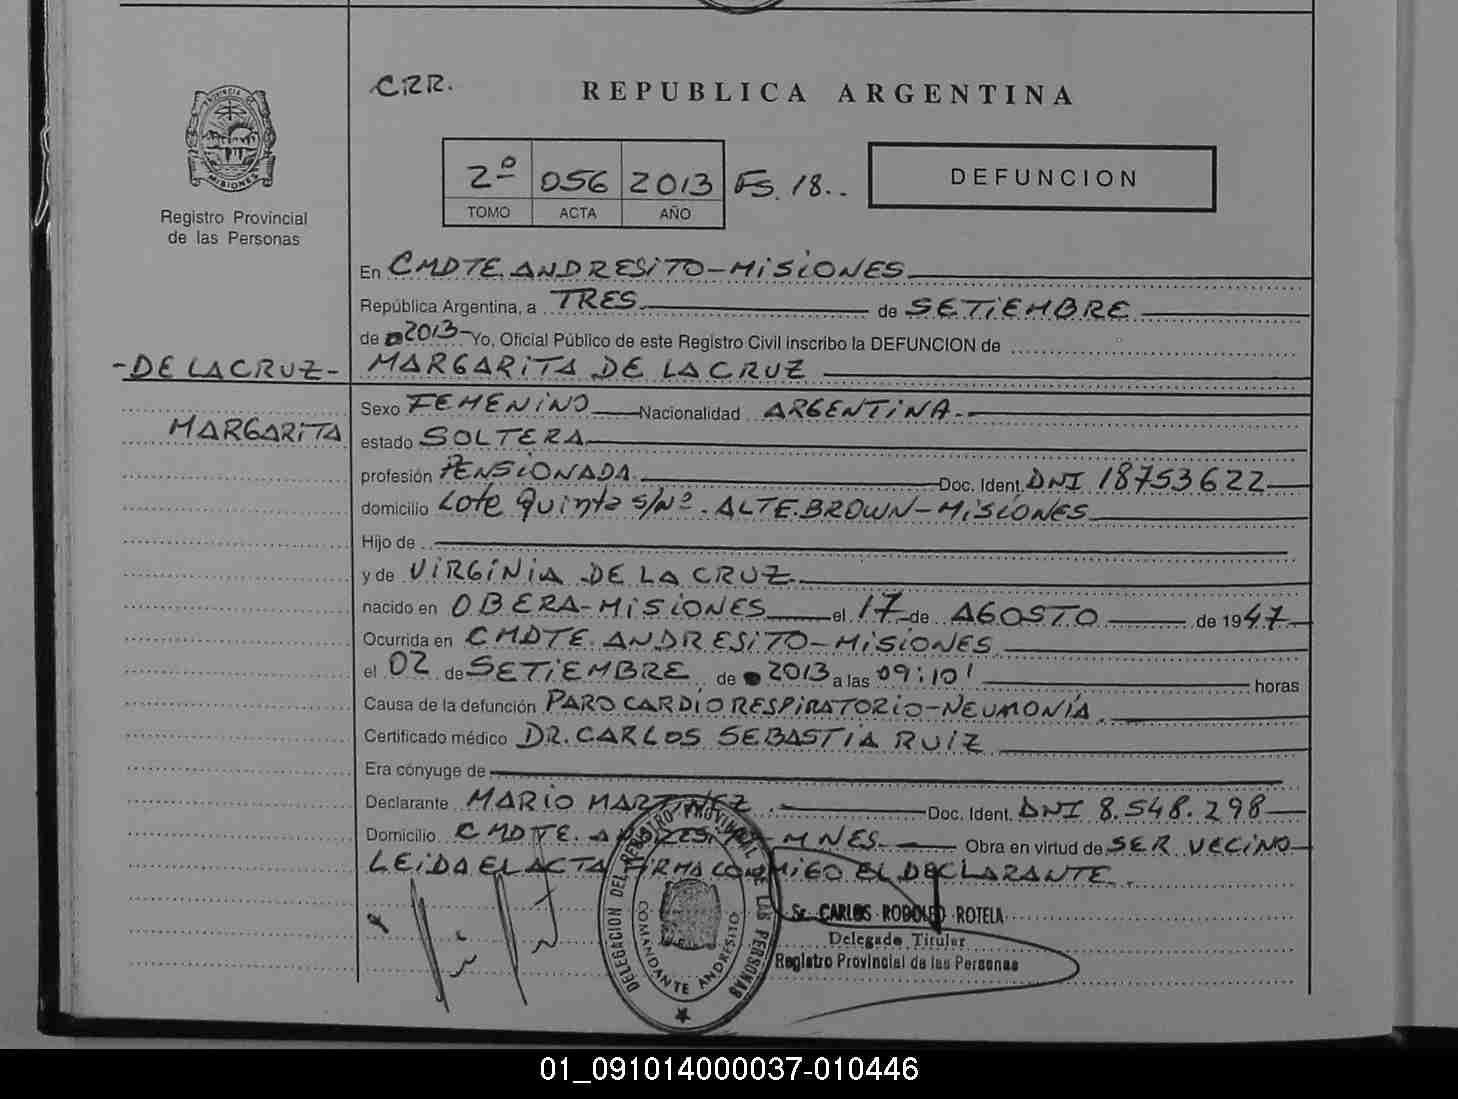 CRR.
REPUBLICA ARGENTINA
PROVINCIA DE MISIONES
2º 056 2013 FS. 18..
TOMO ACTA AÑO
DEFUNCION
Registro Provincial
de las Personas
En CMDTE. ANDRESITO-MISIONES
República Argentina, a TRES de SETIEMBRE
de 2013- Yo, Oficial Público de este Registro Civil inscribo la DEFUNCION de
-DE LA CRUZ- MARGARITA DE LA CRUZ
Sexo FEMENINO Nacionalidad ARGENTINA.
MARGARITA
estado SOLTERA
profesión PENSIONADA Doc. Ident. DNI 18753622
domicilio Lote Quinta s/Nº. ALTE. BROWN-MISIONES
Hijo de
y de VIRGINIA DE LA CRUZ
nacido en OBERA-MISIONES el 17 de AGOSTO de 1947
Ocurrida en CMDTE. ANDRESITO-MISIONES
el 02 de SETIEMBRE de 2013 a las 09:10' horas
Causa de la defunción PARO CARDIORESPIRATORIO-NEUMONÍA
Certificado médico DR. CARLOS SEBASTIA RUIZ
Era cónyuge de
Declarante MARIO MARTINEZ Doc. Ident. DNI 8.548.298
Domicilio CMDTE. ANDRESITO-MNES. Obra en virtud de SER VECINO
LEIDA EL ACTA FIRMA CONMIGO EL DECLARANTE.
DELEGACION DEL REGISTRO PROVINCIAL DE LAS PERSONAS
COMANDANTE ANDRESITO
Sr. CARLOS RODOLFO ROTELA
Delegado Titular
Registro Provincial de las Personas
01_091014000037-010446